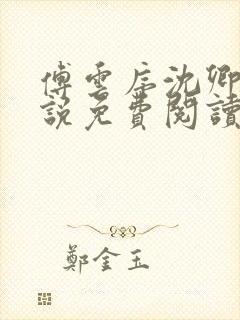 傅雲庭沈卿
說免費閱讀
鄭金玉